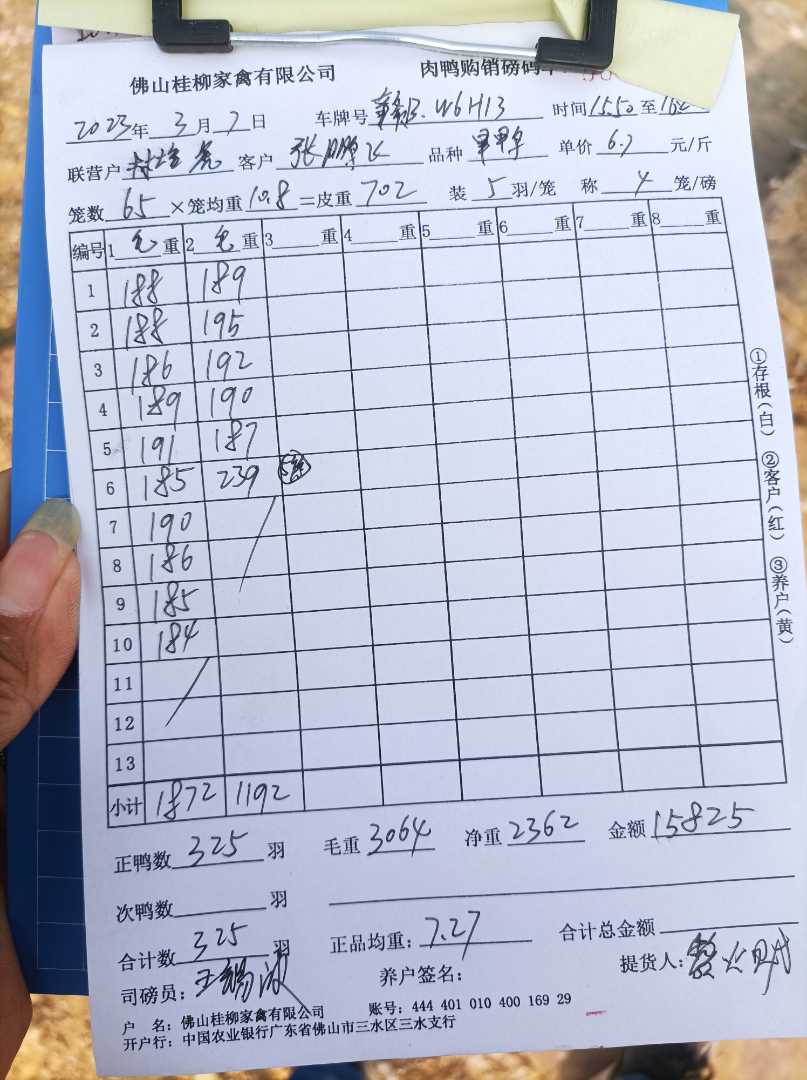 佛山桂柳家禽有限公司 肉鸭购销磅码单
2023年 3月 7日 车牌号 W6H13 时间15.50至
联营户 客户 张鹏飞 品种 单价 6.7 元/斤
笼数 65 ×笼均重10.8=皮重 702 装 5 羽/笼 称 4 笼/磅
编号 1 毛重 2 毛重 3 重 4 重 5 重 6 重 7 重 8 重
1 188 189
2 188 195
3 186 192
4 189 190
5 191 187
6 185 239
7 190
8 186
9 185
10 184
11
12
13
小计 1872 1192
①存根(白) ②客户(红) ③养户(黄)
正鸭数 325 羽 毛重 3064 净重 2362 金额 15825
次鸭数 羽
合计数 325 羽 正品均重: 7.27 合计总金额
司磅员: 养户签名: 提货人:
户 名: 佛山桂柳家禽有限公司 账号: 444 401 010 400 169 29
开户行: 中国农业银行广东省佛山市三水区三水支行